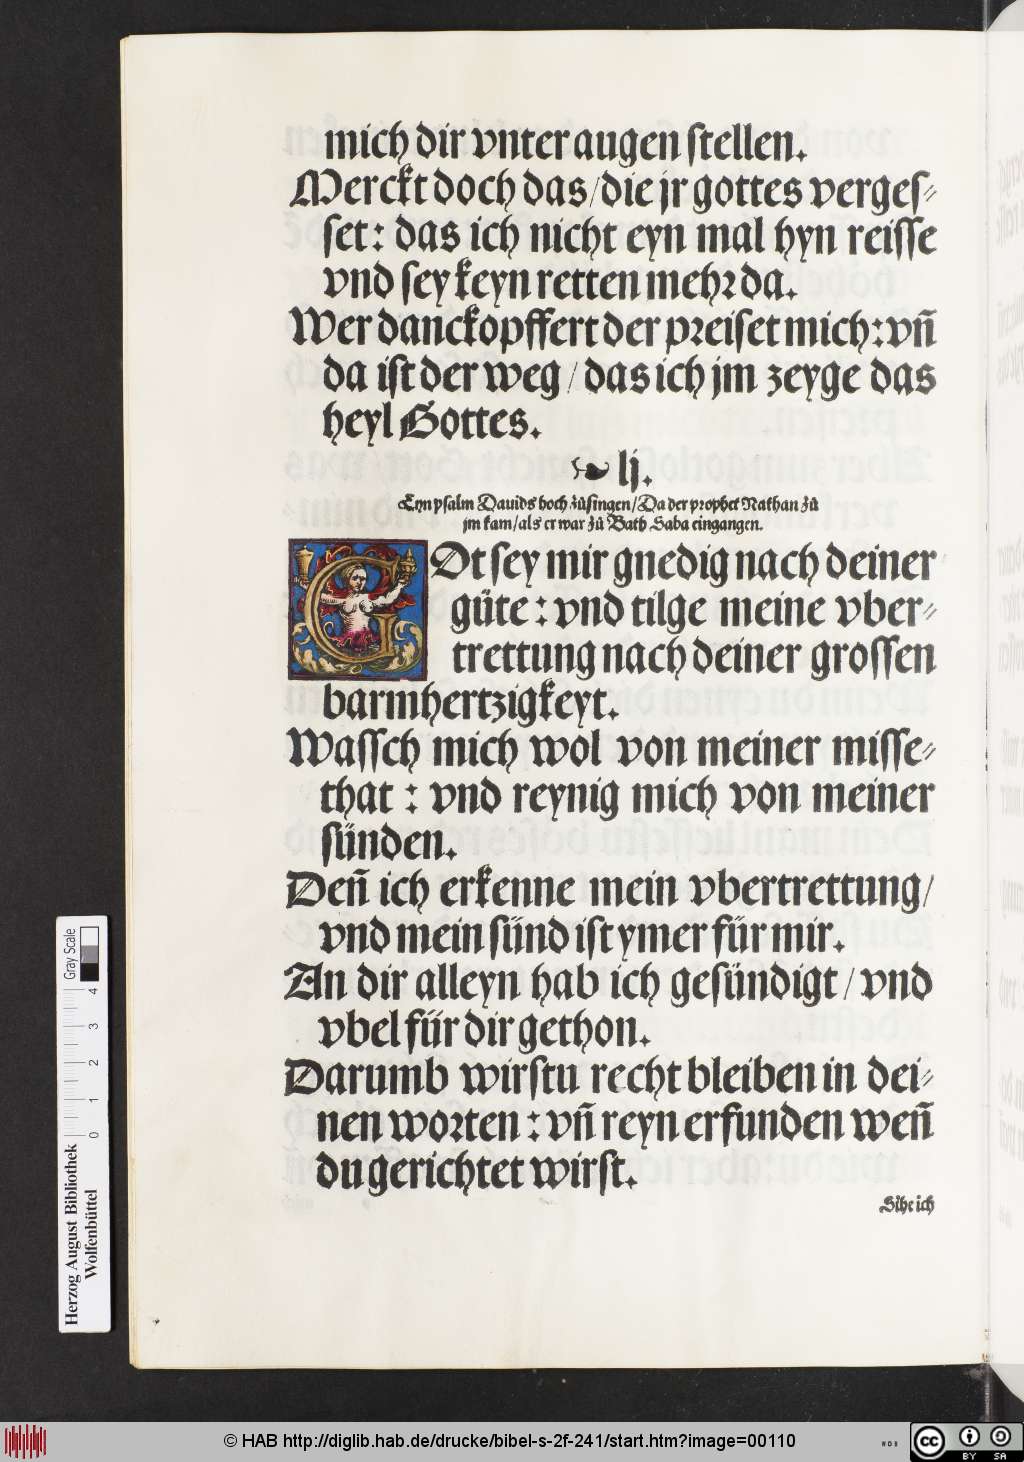 mich dir vnter augen stellen.
Merckt doch das/die jr gottes verges⸗
set: das ich nicht eyn mal hyn reisse
vnd sey keyn retten mehr da.
Wer danckopffert der preiset mich: vn̄
da ist der weg / das ich jm zeyge das
heyl Gottes.
❧ lj.
Eyn psalm Dauids hoch zůsingen/Da der prophet Nathan zů
jm kam/als er war zů Bath Saba eingangen.
GOt sey mir gnedig nach deiner
güte: vnd tilge meine vber⸗
trettung nach deiner grossen
barmhertzigkeyt.
Wassch mich wol von meiner misse⸗
that : vnd reynig mich von meiner
sünden.
Den̄ ich erkenne mein vbertrettung/
vnd mein sünd ist ymer für mir.
An dir alleyn hab ich gesündigt / vnd
vbel für dir gethon.
Darumb wirstu recht bleiben in dei⸗
nen worten : vn̄ reyn erfunden wen̄
du gerichtet wirst.
Sihe ich
Herzog August Bibliothek
Wolfenbüttel
0 1 2 3 4
Gray Scale
© HAB http://diglib.hab.de/drucke/bibel-s-2f-241/start.htm?image=00110
WDB
cc BY SA